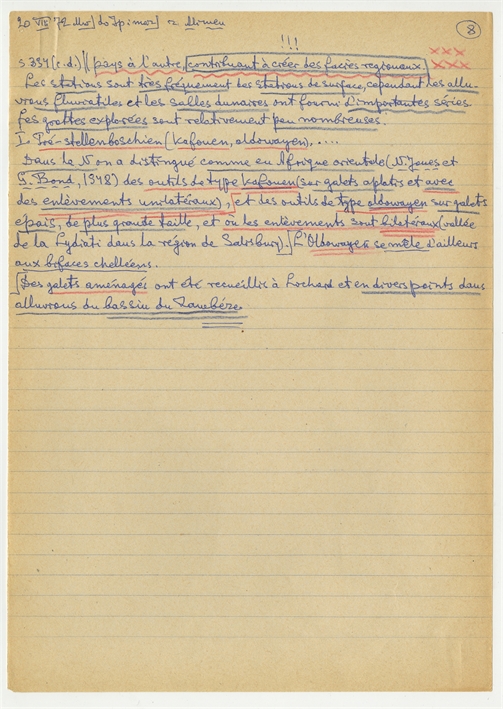 20 VIII 72
8
!!!
s 394 (c.d.) || pays à l'autre, contribuant à créer des faciès regionaux.
xxx
xxx
Les stations sont très fréquement des stations de surface, cependant les allu-
vions fluviatiles et les salles dunaires ont fourni d'importantes séries
Les grottes explorées sont relativement peu nombreuses.
I. Pré-stellenboschien (Kafouen, oldowayen), ....
Dans le N on a distingué comme en Afrique orientale (N. Jones et
G. Bond, 1948) des outils de type Kafouen (sur galets aplatis et avec
des enlèvements unilatéraux), et des outils de type oldowayen sur galets
epais, de plus grande taille, et où les enlèvements sont bilatéraux (vallée
de la Lydiati dans la région de Salisbury).] L'Oldowayen se mêle d'ailleurs
aux bifaces chelléens.
[Des galets aménagés ont été recueillis à Lochard et en divers points dans
alluvions du bassin du Zambéze.